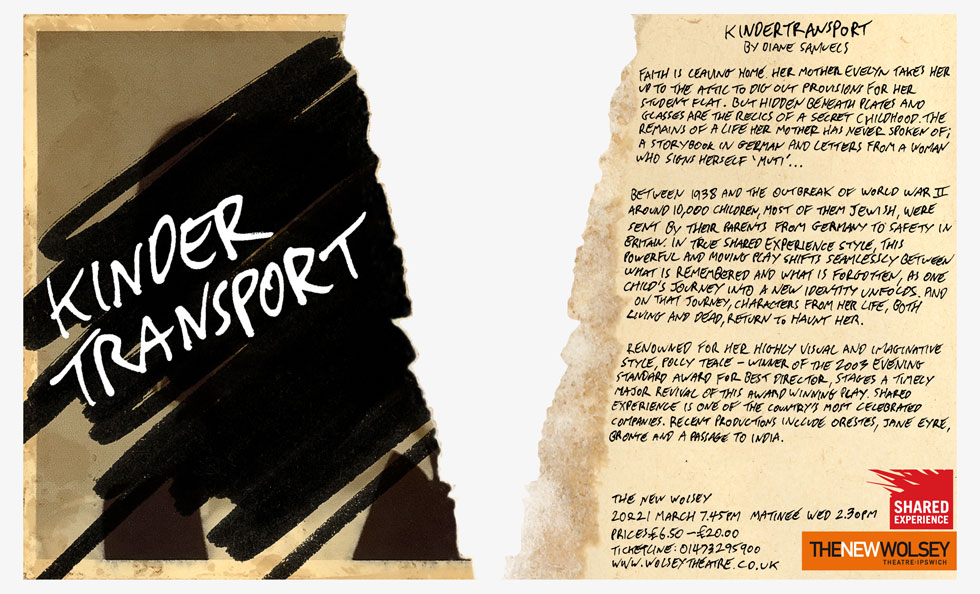 KINDER
TRANSPORT
KINDERTRANSPORT
BY DIANE SAMUELS
FAITH IS LEAVING HOME. HER MOTHER EVELYN TAKES HER
UP TO THE ATTIC TO DIG OUT PROVISIONS FOR HER
STUDENT FLAT. BUT HIDDEN BENEATH PLATES AND
GLASSES ARE THE RELICS OF A SECRET CHILDHOOD. THE
REMAINS OF A LIFE HER MOTHER HAS NEVER SPOKEN OF;
A STORYBOOK IN GERMAN AND LETTERS FROM A WOMAN
WHO SIGNS HERSELF 'MUTI'...
BETWEEN 1938 AND THE OUTBREAK OF WORLD WAR II
AROUND 10,000 CHILDREN, MOST OF THEM JEWISH, WERE
SENT BY THEIR PARENTS FROM GERMANY TO SAFETY IN
BRITAIN. IN TRUE SHARED EXPERIENCE STYLE, THIS
POWERFUL AND MOVING PLAY SHIFTS SEAMLESSLY BETWEEN
WHAT IS REMEMBERED AND WHAT IS FORGOTTEN, AS ONE
CHILD'S JOURNEY INTO A NEW IDENTITY UNFOLDS. AND
ON THAT JOURNEY, CHARACTERS FROM HER LIFE, BOTH
LIVING AND DEAD, RETURN TO HAUNT HER.
RENOWNED FOR HER HIGHLY VISUAL AND IMAGINATIVE
STYLE, POLLY TEALE – WINNER OF THE 2003 EVENING
STANDARD AWARD FOR BEST DIRECTOR, STAGES A TIMELY
MAJOR REVIVAL OF THIS AWARD WINNING PLAY. SHARED
EXPERIENCE IS ONE OF THE COUNTRY'S MOST CELEBRATED
COMPANIES. RECENT PRODUCTIONS INCLUDE ORESTES, JANE EYRE,
BRONTE AND A PASSAGE TO INDIA.
THE NEW WOLSEY
20221 MARCH 7.45PM MATINEE WED 2.30PM
PRICES £6.50 – £20.00
TICKETLINE: 01473295900
WWW.WOLSEYTHEATRE.CO.UK
SHARED
EXPERIENCE
THENEWWOLSEY
THEATRE·IPSWICH